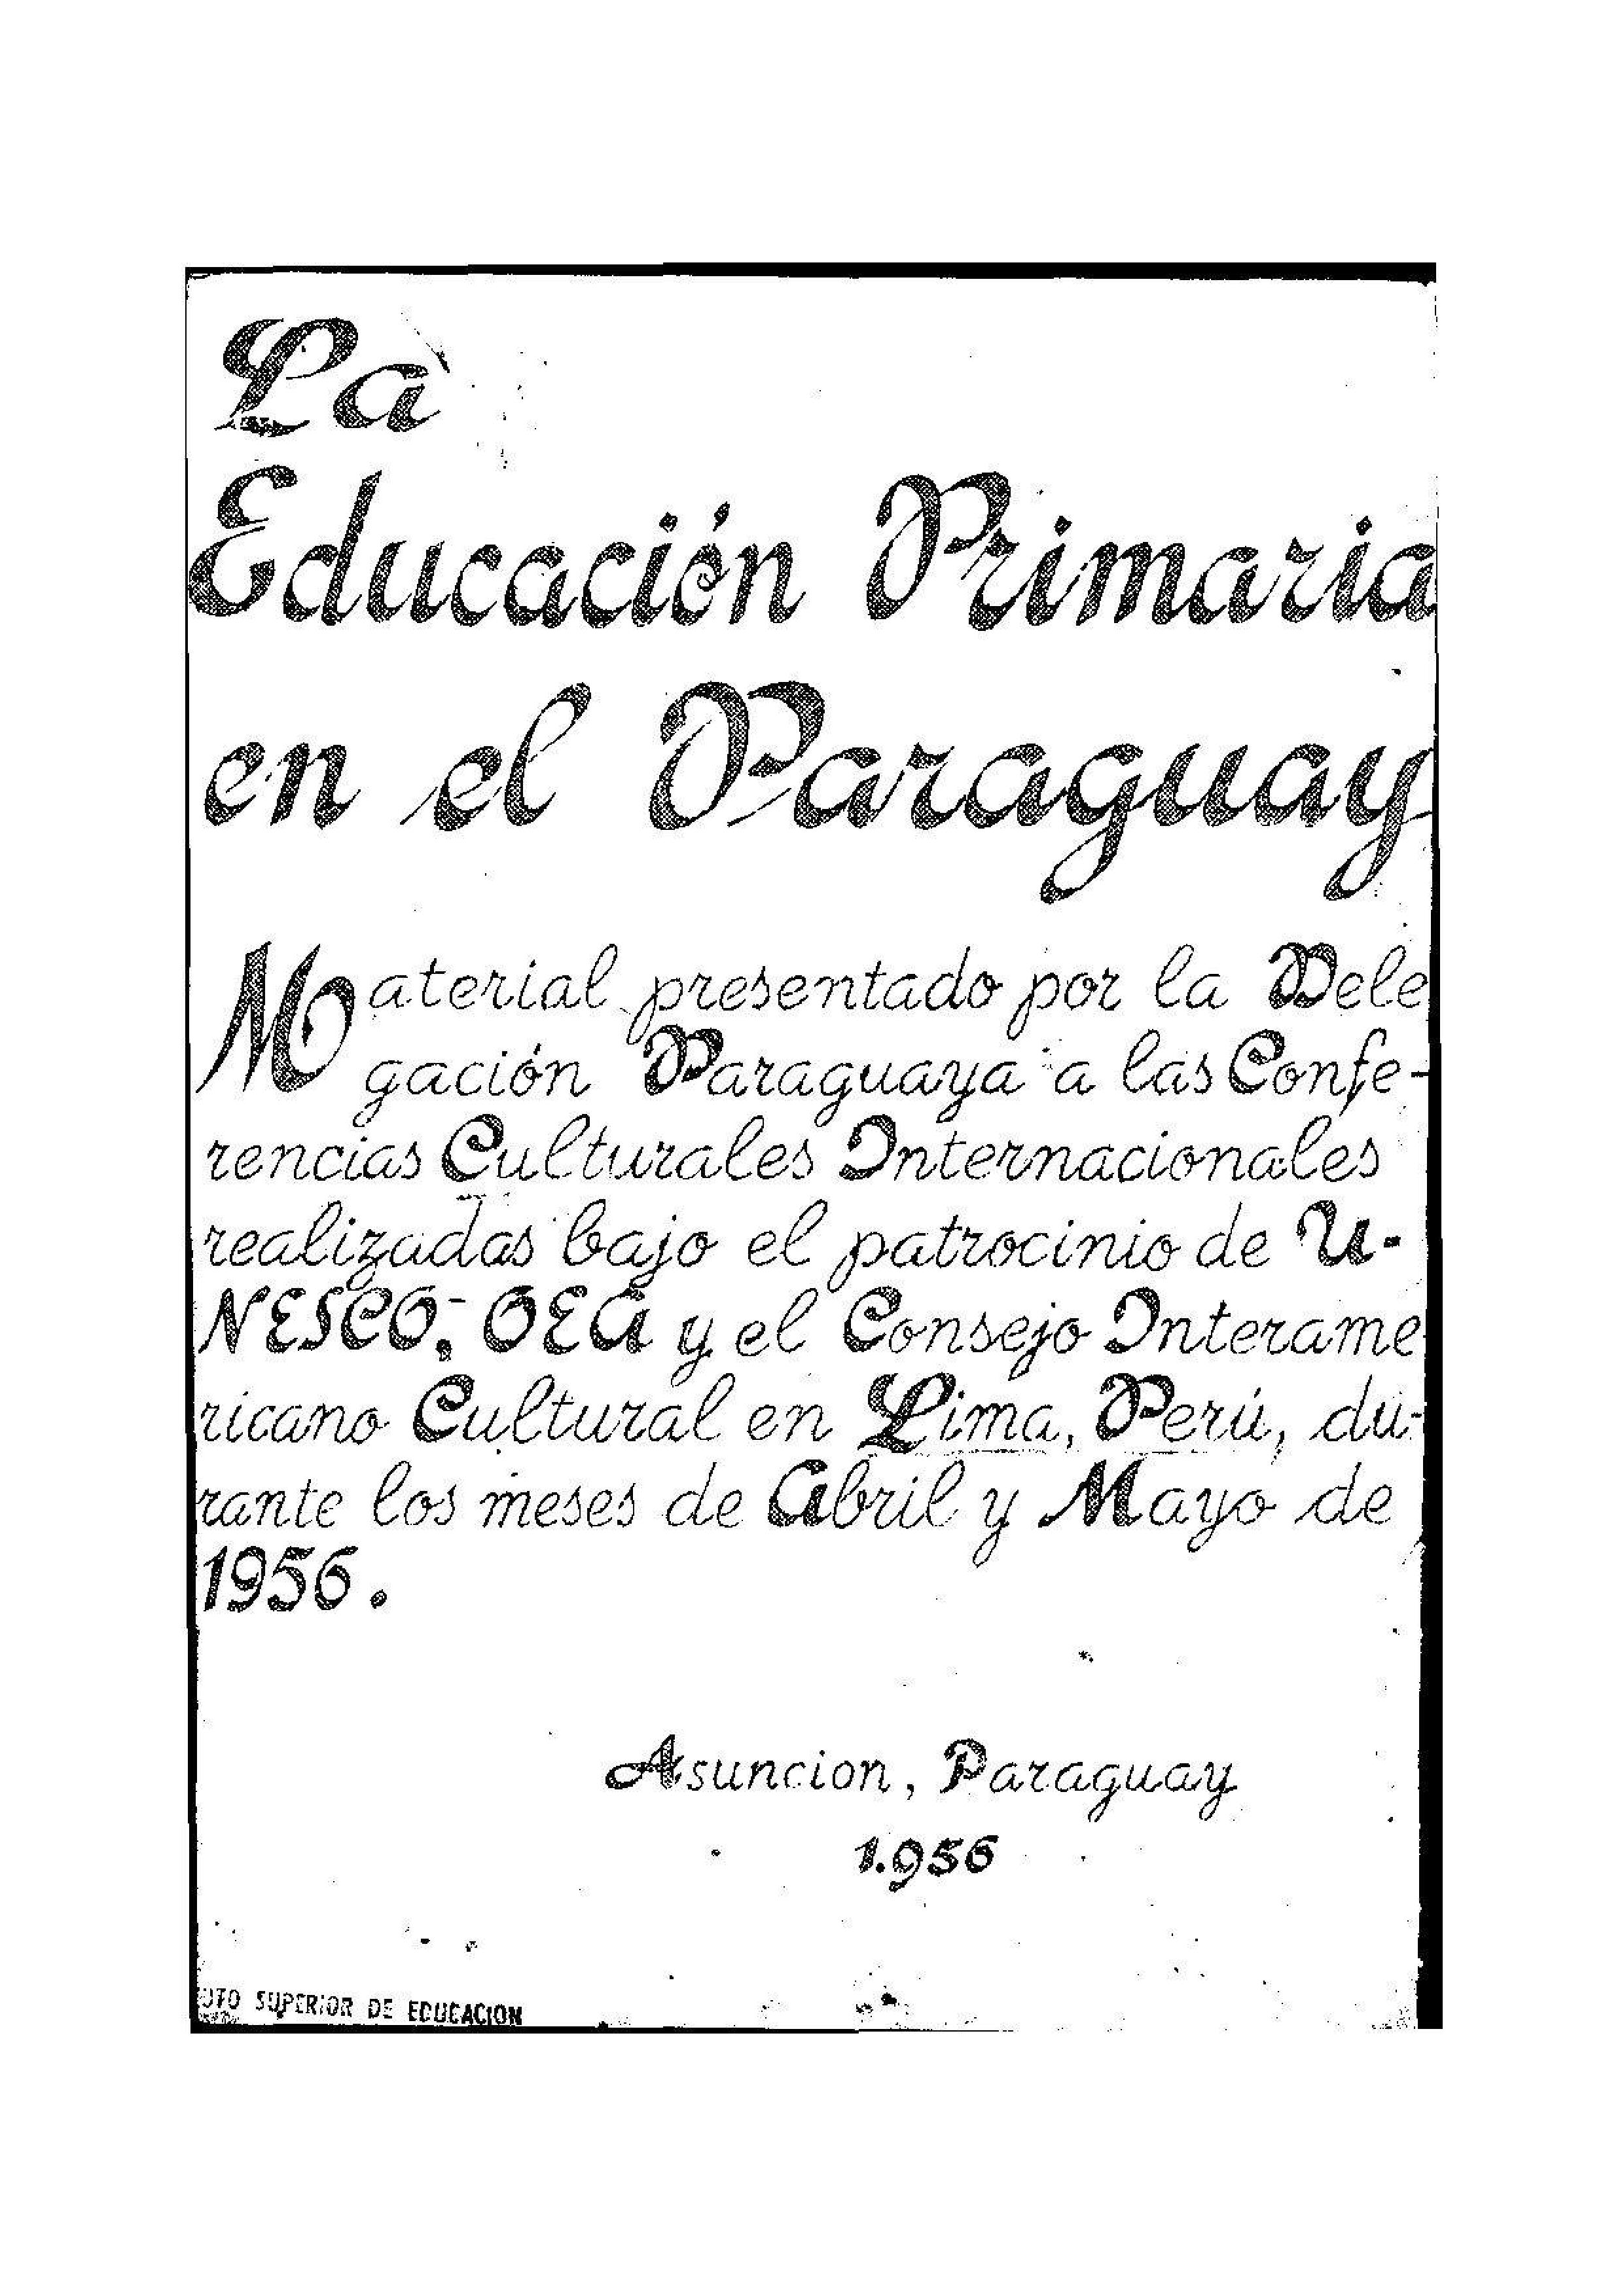 La
Educación Primaria
en el Paraguay
Material presentado por la Dele
gación Paraguaya a las Confe-
rencias Culturales Internacionales
realizadas bajo el patrocinio de U-
NESCO; OEA y el Consejo Interame
ricano Cultural en Lima, Perú, du-
rante los meses de Abril y Mayo de
1956.
Asuncion, Paraguay
1.956
UTO SUPERIOR DE EDUCACION